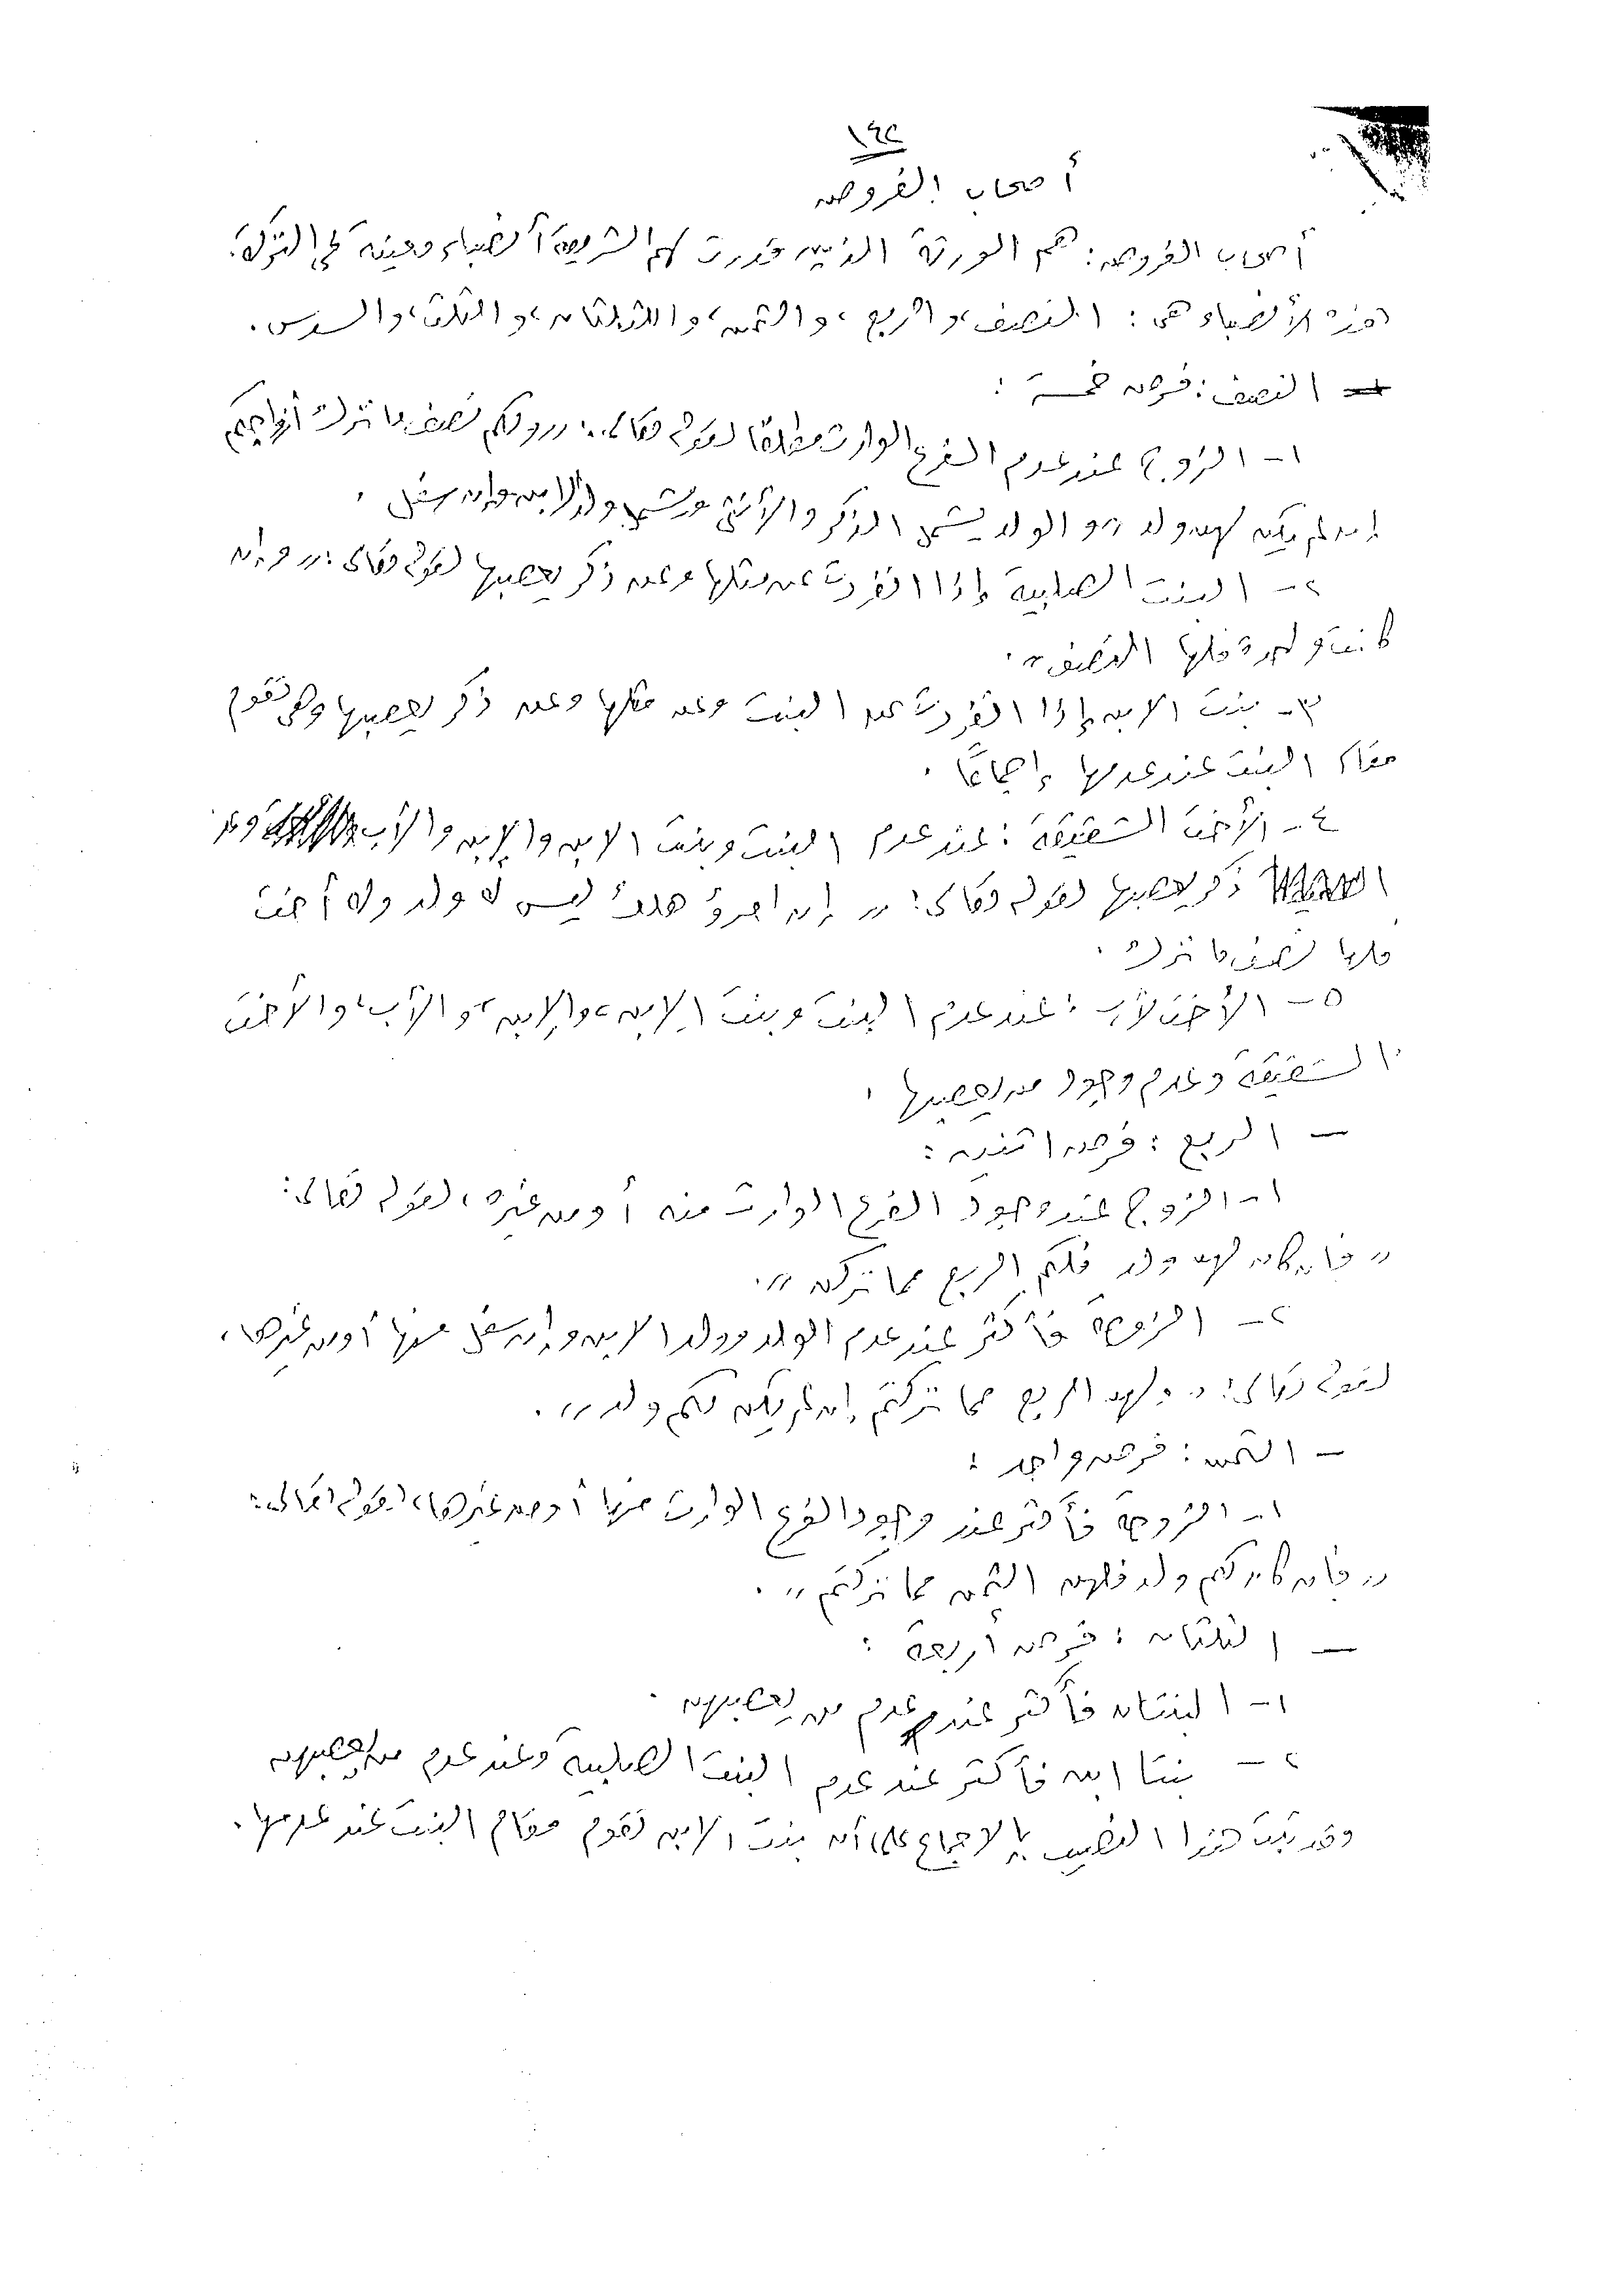 ١٩٢
أصحاب الفروض
أصحاب الفروض: هم الورثة الذين قدرت لهم الشريعة أنصباء معينة في التركة.
هذه الأنصباء هي: النصف، والربع، والثمن، والثلثان، والثلث، والسدس.
- النصف: فرض خمسة:
١- الزوج عند عدم الفرع الوارث مطلقا لقوله تعالى: "ولكم نصف ما ترك أزواجكم
إن لم يكن لهن ولد" والولد يشمل الذكر والأنثى ويشمل ولد الابن وإن سفل.
٢- البنت الصلبية إذا انفردت عن مثلها وعن ذكر يعصبها لقوله تعالى: "وإن
كانت واحدة فلها النصف".
٣- بنت الابن إذا انفردت عن البنت وعن مثلها وعن ذكر يعصبها وهي تقوم
مقام البنت عند عدمها إجماعًا.
٤- الأخت الشقيقة: عند عدم البنت وبنت الابن والابن والأب
ذكر يعصبها لقوله تعالى: "إن امرؤ هلك ليس له ولد وله أخت
فلها نصف ما ترك.
٥- الأخت لأب: عند عدم البنت وبنت الابن، والابن، والأب، والأخت
الشقيقة وعدم وجود من يعصبها.
- الربع: فرض اثنين:
١- الزوج عند وجود الفرع الوارث منه أو من غيره، لقوله تعالى:
"فإن كان لهن ولد فلكم الربع مما تركن".
٢- الزوجة فأكثر عند عدم الولد وولد الابن وإن سفل منها أو من غيرها،
لقوله تعالى: "ولهن الربع مما تركتم إن لم يكن لكم ولد".
- الثمن: فرض واحد:
١- الزوجة فأكثر عند وجود الفرع الوارث منها أو من غيرها، لقوله تعالى:
"فإن كان لكم ولد فلهن الثمن مما تركتم".
- الثلثان: فرض أربعة:
١- البنتان فأكثر عند عدم من يعصبهن.
٢- بنتا ابن فأكثر عند عدم البنت الصلبية وعند عدم من يعصبهن
وقد ثبت هذا النصيب بالاجماع على أن بنت الابن تقوم مقام البنت عند عدمها.